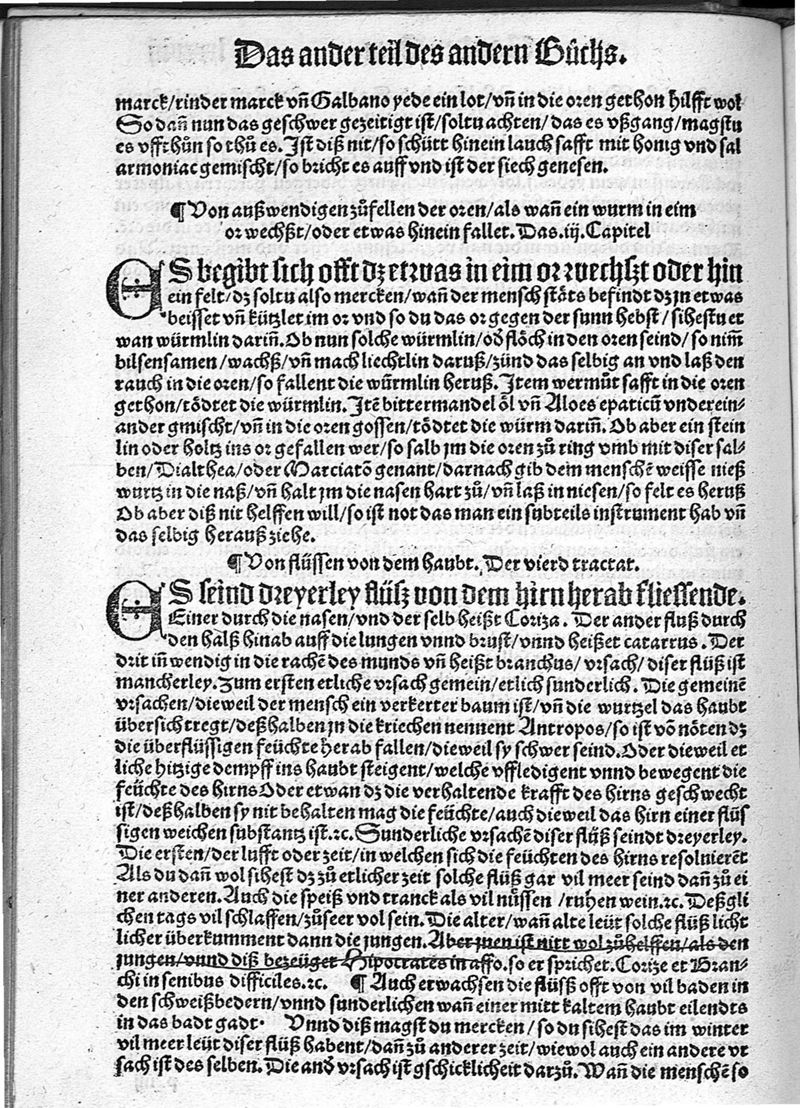 Das ander teil des andern Bůchs.
marck/rinder marck vñ Galbano yede ein lot/vñ in die oren gethon hilfft wol
So dañ nun das geschwer gezeitigt ist/soltu achten/das es vßgang/magstu
es vffthůn so thů es. Ist diß nit/so schütt hinein lauch safft mit honig vnd sal
armoniac gemischt/so bricht es auff vnd ist der siech genesen.
¶ Von außwendigen zůfellen der oren/als wañ ein wurm in eim
or wechßt/oder etwas hinein fallet. Das.iij.Capitel
ES begibt sich offt dz etwas in eim or wechszt oder hin
ein felt/dz soltu also mercken/wañ der mensch stäts befindt dz jn etwas
beisset vñ kützlet im or vnd so du das or gegen der sunn hebst/sihestu et
wan würmlin dariñ. Ob nun solche würmlin/oď flöch in den oren seind/so niм̃
bilsensamen/wachß/vñ mach liechtlin daruß/zünd das selbig an vnd laß den
rauch in die oren/so fallent die würmlin heruß. Item wermůt safft in die oren
gethon/tödtet die würmlin. Itē bittermandel öl vñ Aloes epaticū vnderein-
ander gmischt/vñ in die oren gossen/tödtet die würm dariñ. Ob aber ein stein
lin oder holtz ins or gefallen wer/so salb jm die oren zů ring vmb mit diser sal-
ben/Dialthea/oder Marciatō genant/darnach gib dem menschē weisse nieß
wurtz in die naß/vñ halt jm die nasen hart zů/vñ laß in niesen/so felt es heruß
Ob aber diß nit helffen will/so ist not das man ein subteils instrument hab vñ
das selbig herauß ziehe.
¶ Von flüssen von dem haubt. Der vierd tractat.
ES seind dreyerley flüsz von dem hirn herab fliessende.
Einer durch die nasen/vnd der selb heißt Coriza. Der ander fluß durch
den halß hinab auff die lungen vnnd brust/vnnd heißet catarrus. Der
drit iñ wendig in die rachē des munds vñ heißt branchus/vrsach/diser flüß ist
mancherley. Zum ersten etliche vrsach gemein/etlich sunderlich. Die gemeinē
vrsachen/dieweil der mensch ein verkerter baum ist/vñ die wurtzel das haubt
übersich tregt/deßhalben jn die kriechen nennent Antropos/so ist vō nöten dz
die überflüssigen feüchte herab fallen/dieweil sy schwer seind. Oder dieweil et
liche hitzige dempff ins haubt steigent/welche vffledigent vnnd bewegent die
feüchte des hirns Oder etwan dz die verhaltende krafft des hirns geschwecht
ist/deßhalben sy nit behalten mag die feüchte/auch dieweil das hirn einer flüs
sigen weichen substantz ist.ꝛc. Sunderliche vrsachē diser flüß seindt dreyerley.
Die ersten/der lufft oder zeit/in welchen sich die feüchten des hirns resolnierēt
Als du dañ wol sihest dz zů etlicher zeit solche flüß gar vil meer seind dañ zů ei
ner anderen. Auch die speiß vnd tranck als vil nüssen/ruhen wein.ꝛc. Deßgli
chen tags vil schlaffen/zůseer vol sein. Die alter/wañ alte leüt solche flüß licht
licher überkumment dann die jungen. Aber jnen ist nitt wol zůhelffen/als den
jungen/vnnd diß bezeüget Hipocrates in affo. so er sprichet. Corize et Bran-
chi in senibus difficiles.ꝛc. ¶ Auch erwachsen die flüsß offt von vil baden in
den schweißbedern/vnnd sunderlichen wañ einer mitt kaltem haubt eilendts
in das badt gadt. Vnnd diß magstu mercken/so du sihest das im winter
vil meer leüt diser flüß habent/dañ zů anderer zeit/wiewol auch ein andere vr
sach ist des selben. Die anď vrsach ist gschicklicheit darzů. Wañ die menschē so